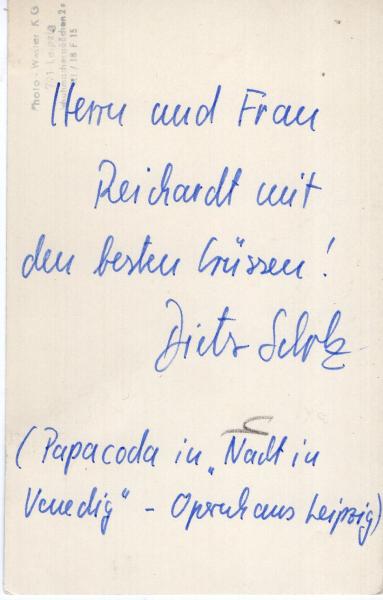 Photo - Wester K G
701 Leipzig
Herrn und Frau
Reichardt mit
den besten Grüssen!
Dietz Scholz
(Papacoda in „Nacht in
Venedig“ - Opernhaus Leipzig)